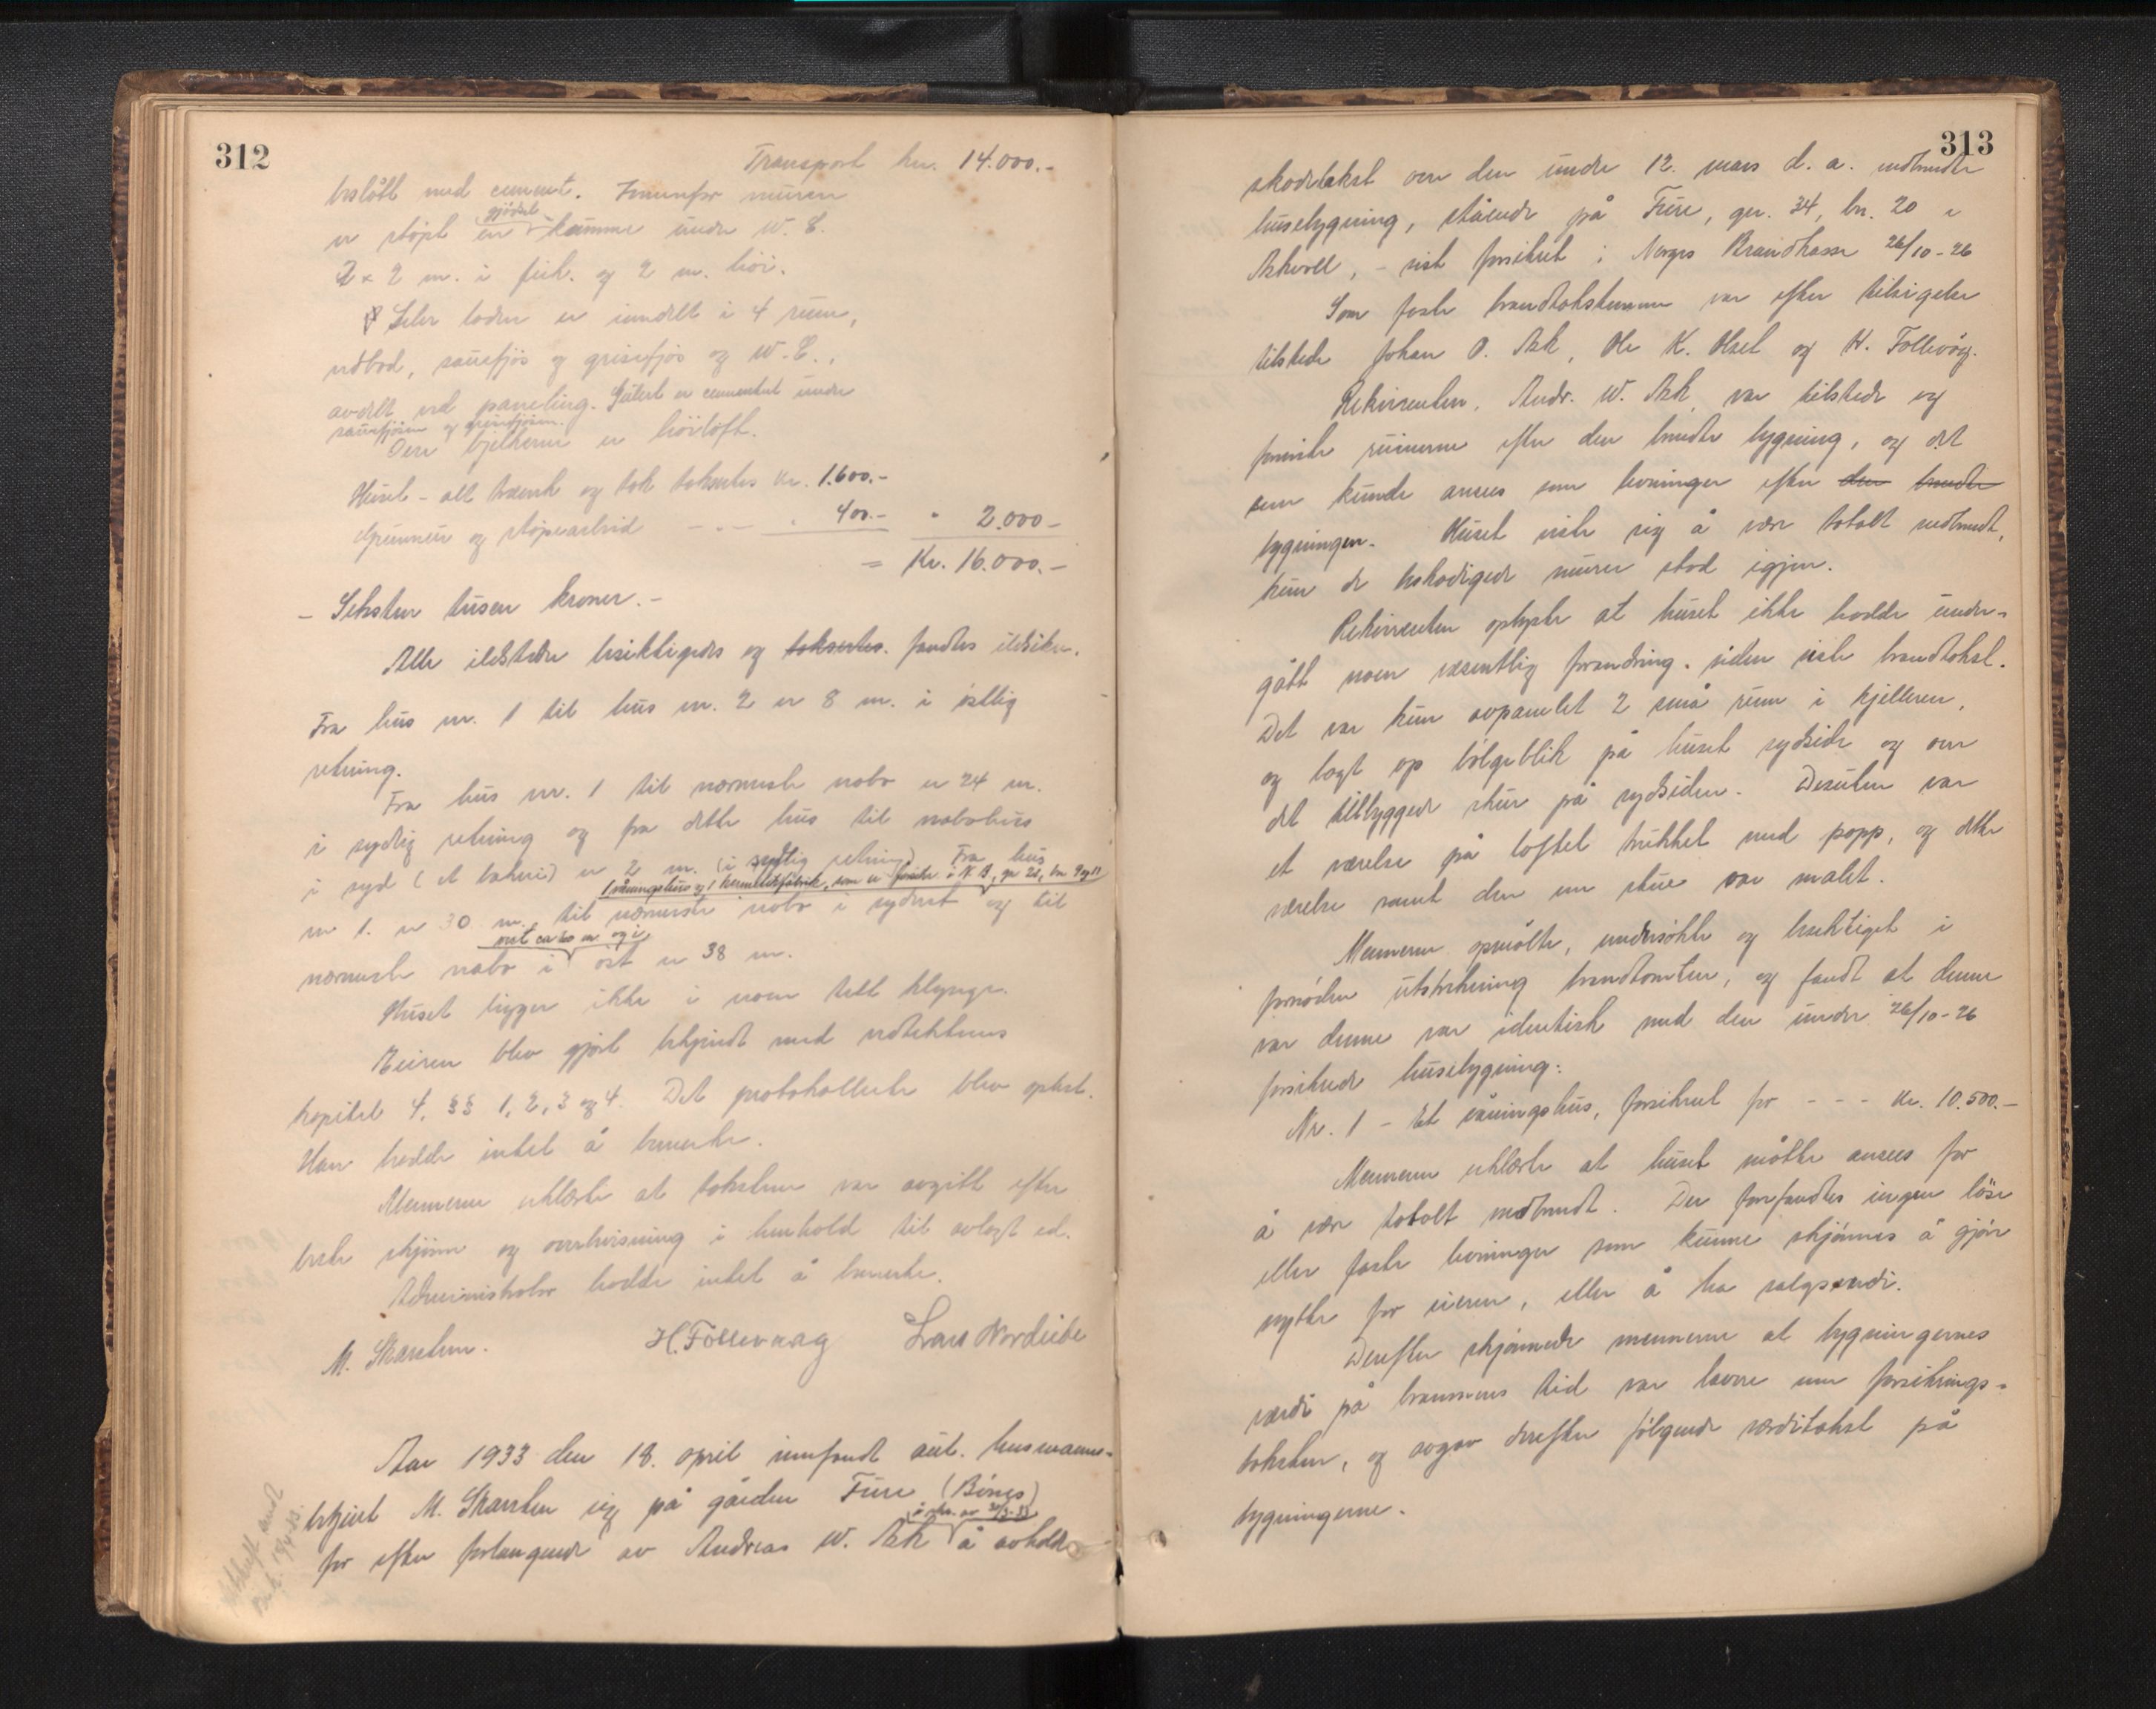 312
Transport kr. 14.000.-
beslått med cement. Innenfor muren
er støpt en gjødsel kumme under W. C.
2 x 2 m. i firk. og 2 m. høi.
Selve loden er inndelt i 4 rum,
vedbod, sauefjøs og grisefjøs og W. C.,
avdelt ved paneling. Gulvet er cementert under
sauefjøsen og grisefjøsen.
Over bjelkerne er høiloft.
Huset - alt træverk og tak takseertes kr. 1.600.-
Grunnmur og støpearbeid - - - " 400.- " 2.000.-
= Kr. 16.000.-
- Seksten tusen kroner. -
Alle ildsteder besiktigedes og taksertes. fandtes ildsikre.
Fra hus nr. 1 til hus nr. 2 er 8 m. i østlig
retning.
Fra hus nr. 1 til nærmeste nabo er 24 m.
i sydlig retning og fra dette hus til nabohus
i syd (et bakeri) er 2 m. (i sydlig retning). Fra hus
1 våningshus og 1 hermetikfabrik, som er forsikr. i N. B., gr 28, bn 9 og 11
nr 1. er 30 m. til nærmeste nabo i sydvest og til
vest ca 20 m og i
nærmeste nabo i øst er 38 m.
Huset ligger ikke i noen tett klynge.
Eieren blev gjort bekjendt med vedtektenes
kapitel 4, §§ 1, 2, 3 og 4. Det protokollerte blev oplest.
Han hadde intet å bemerke.
Mennene erklærte at taksten var avgitt efter
beste skjønn og overbevisning i henhold til avlagt ed.
Administrator hadde intet å bemerke.
M. Skarsten. H. Follevaag Lars Nordeide
Aar 1933 den 18. april innfandt aut. lensmanns-
betjent M. Skarsten sig på gården Fure (Bimes)
i skr. av 30/3-33
for efter forlangende av Andreas W. Ask å avholde
Utskrift sendt
13/4-33.
313
skadetakst over den under 12. mars d. a. nedbrendte
husebygning, stående på Fure, gr. 34, bn. 20 i
Askvoll, - sist forsikret i Norges Brandkasse 26/10-26
Som faste brandtakstmenn var efter tilsigelse
tilstede Johan O. Ask, Ole K. Olset og H. Follevåg.
Rekvirenten, Andr. W. Ask var tilstede og
forviste ruinerne efter den brendte bygning, og det
som kunde ansees som levninger efter den brendte
bygningen. Huset viste sig å være totalt nedbrendt,
kun de beskadigede murer stod igjen.
Rekvirenten oplyste at huset ikke hadde under-
gått noen væsentlig forandring siden siste brandtakst.
Det var kun avpanelet 2 små rum i kjelleren,
og lagt op bølgeblik på huset sydside og over
det tilbyggede skur på sydsiden. Desuten var
et værelse på loftet trukket med papp, og dette
værelse samt den ene stue var malet.
Mennene opmålte, undersøkte og besiktiget i
fornøden utstrekning brandtomten, og fandt at denne
var denne var identisk med den under 26/10-26
forsikrede husebygning:
Nr. 1 - Et våningshus, forsikret for - - - kr. 10.500.-
Mennene erklærte at huset måtte ansees for
å være totalt nedbrendt. Der forefandtes ingen løse
eller faste levninger som kunne skjønnes å gjøre
nytte for eieren, eller å ha salgsværdi.
Derefter skjønnede mennene at bygningernes
værdi på brannens tid var lavere enn forsikrings-
taksten, og avgav derefter følgende værditakst på
bygningerne.